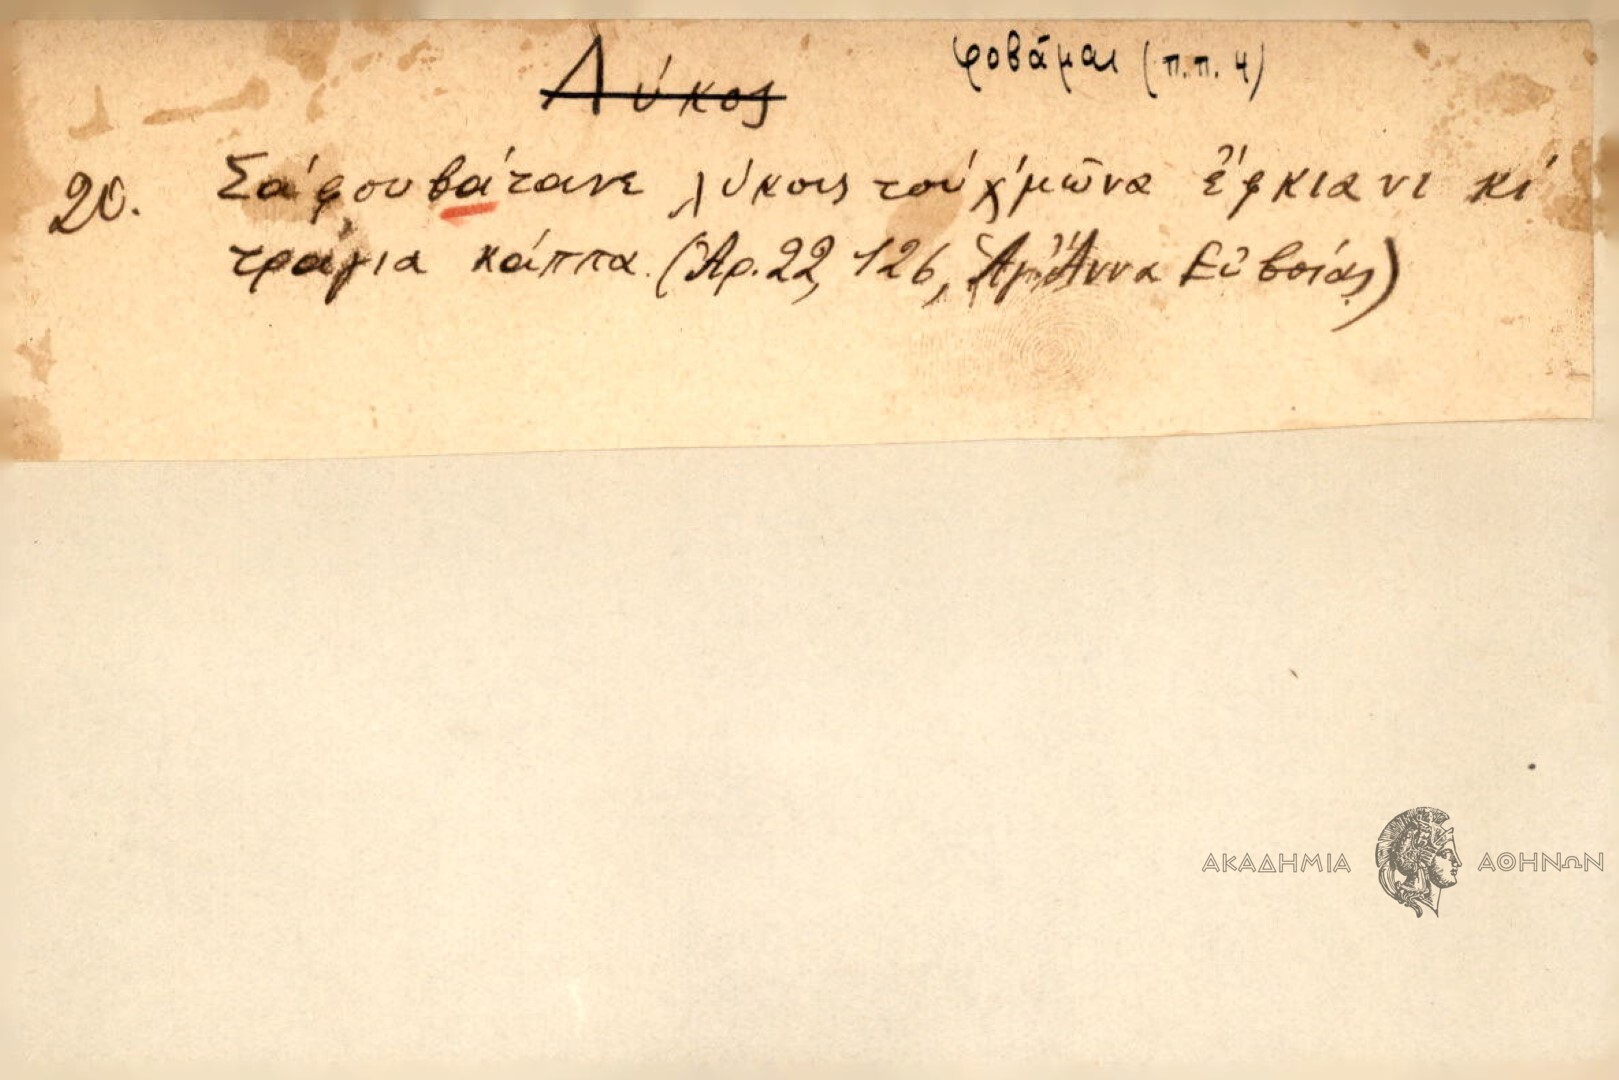 Λύκος
φοβᾶμαι (π.π. 4)
20. Σά φουβάτανε λύκους τού χ'μῶνα ἔφκιανι κί
τράγια κάππα. (Ἀρ. 22, 126, Ἁγ. Ἄννα Εὐβοίας)
ΑΚΑΔΗΜΙΑ ΑΘΗΝΩΝ